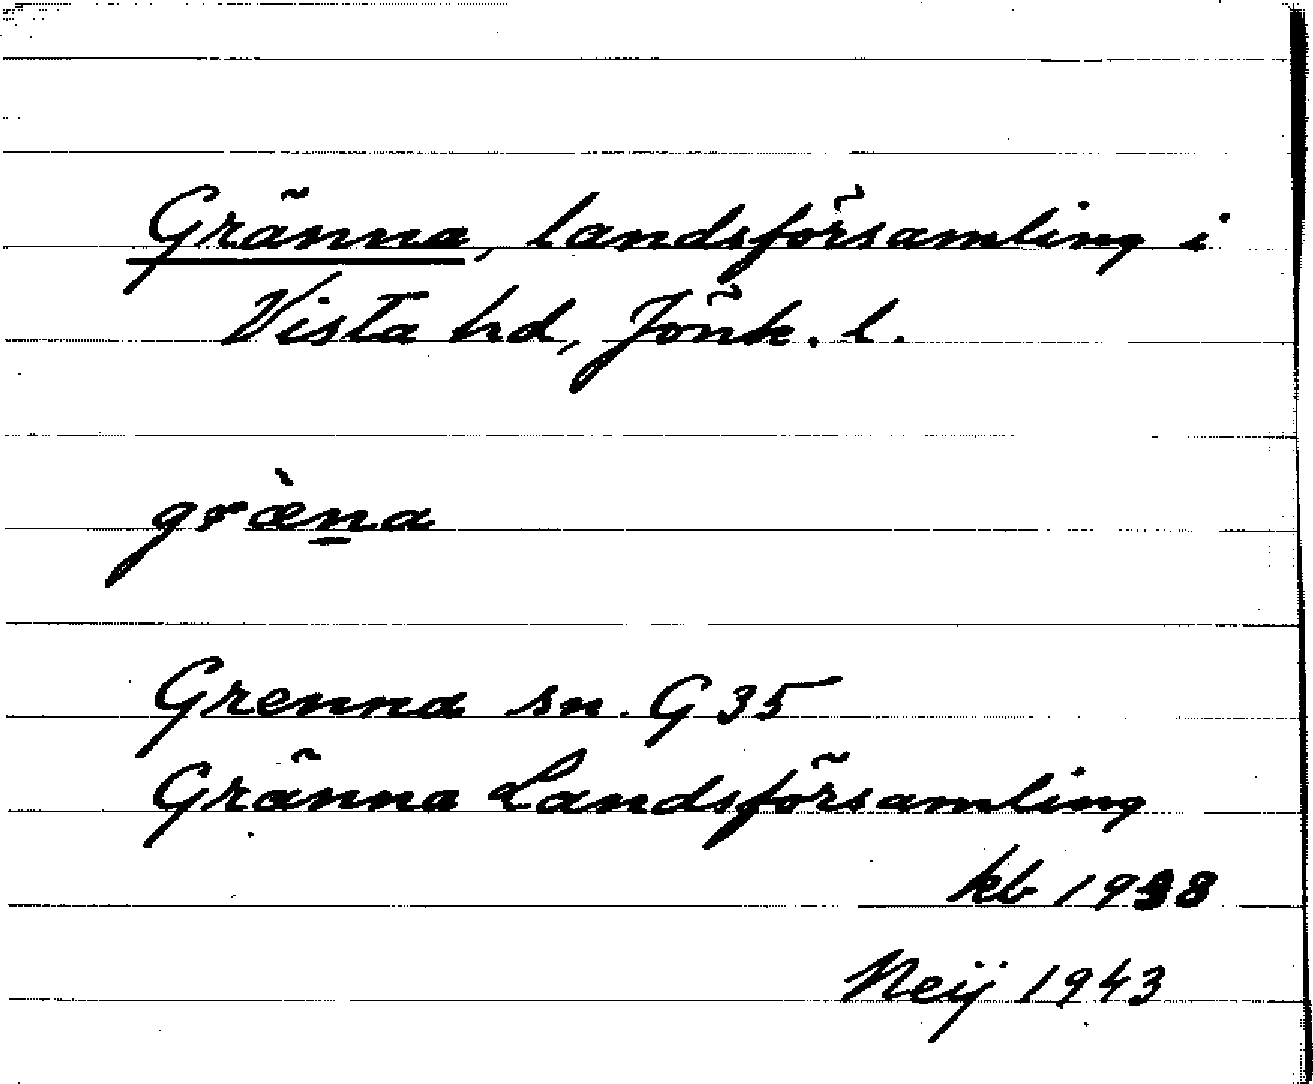 Gränna, landsförsamling i
Vista hd, Jönk. l.
græ̀n̲a
Grenna sn. G 35
Gränna Landsförsamling
kb 1938
Neij 1943